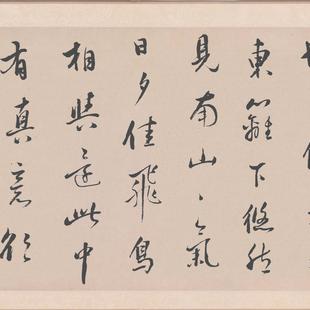 東籬下悠然
見南山〻氣
日夕佳飛鳥
相與還此中
有真意欲